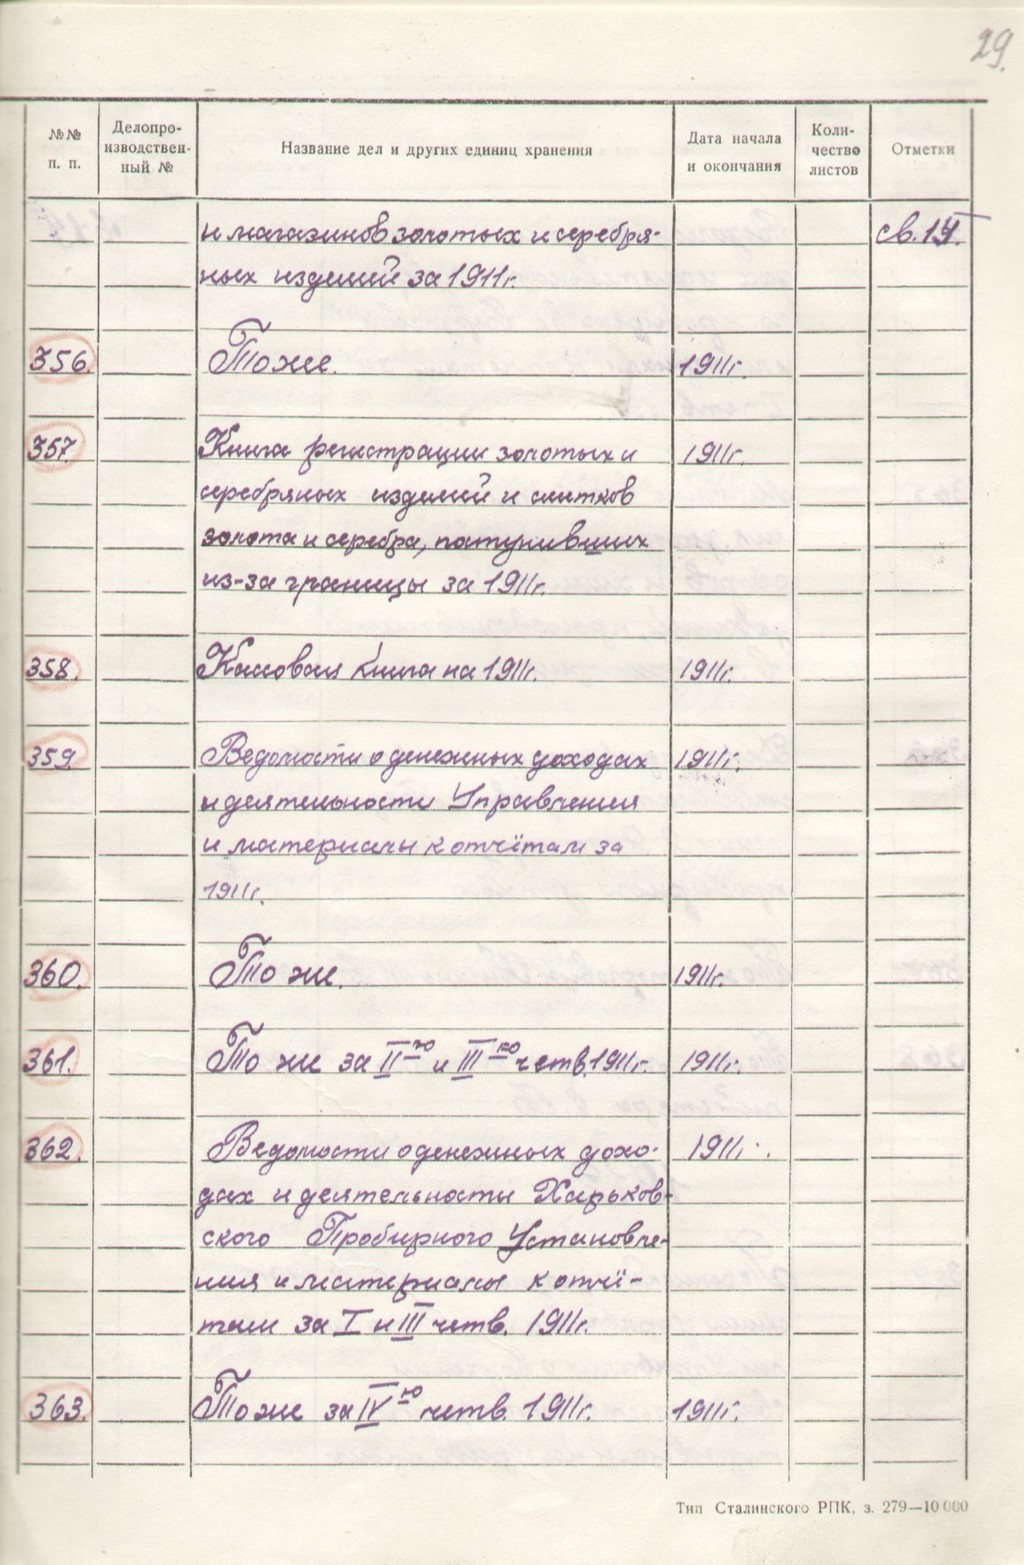 29.
№№ п. п.
Делопро-
изводствен-
ный №
Название дел и других единиц хранения
Дата начала
и окончания
Коли-
чество
листов
Отметки
и магазинов золотых и серебря- св.
ных изделий за 1911г.
356. То же. 1911г.
357. Книга регистрации золотых и 1911г.
серебряных изделий и слитков
золота и серебра, поступивших
из-за границы за 1911г.
358. Кассовая книга на 1911г. 1911г.
359. Ведомости о денежных доходах 1911г.
и деятельности Управления
и материалы к отчётам за
1911г.
360. То же. 1911г.
361. То же за II-ю и III-ю четв. 1911г. 1911г.
362. Ведомости о денежных дохо- 1911г.
дах и деятельности Харьков-
ского Пробирного Установле-
ния и материалы к отчё-
там за I и III четв. 1911г.
363. То же за IV-ю четв. 1911г. 1911г.
Тип Сталинского РПК, з. 279—10 000